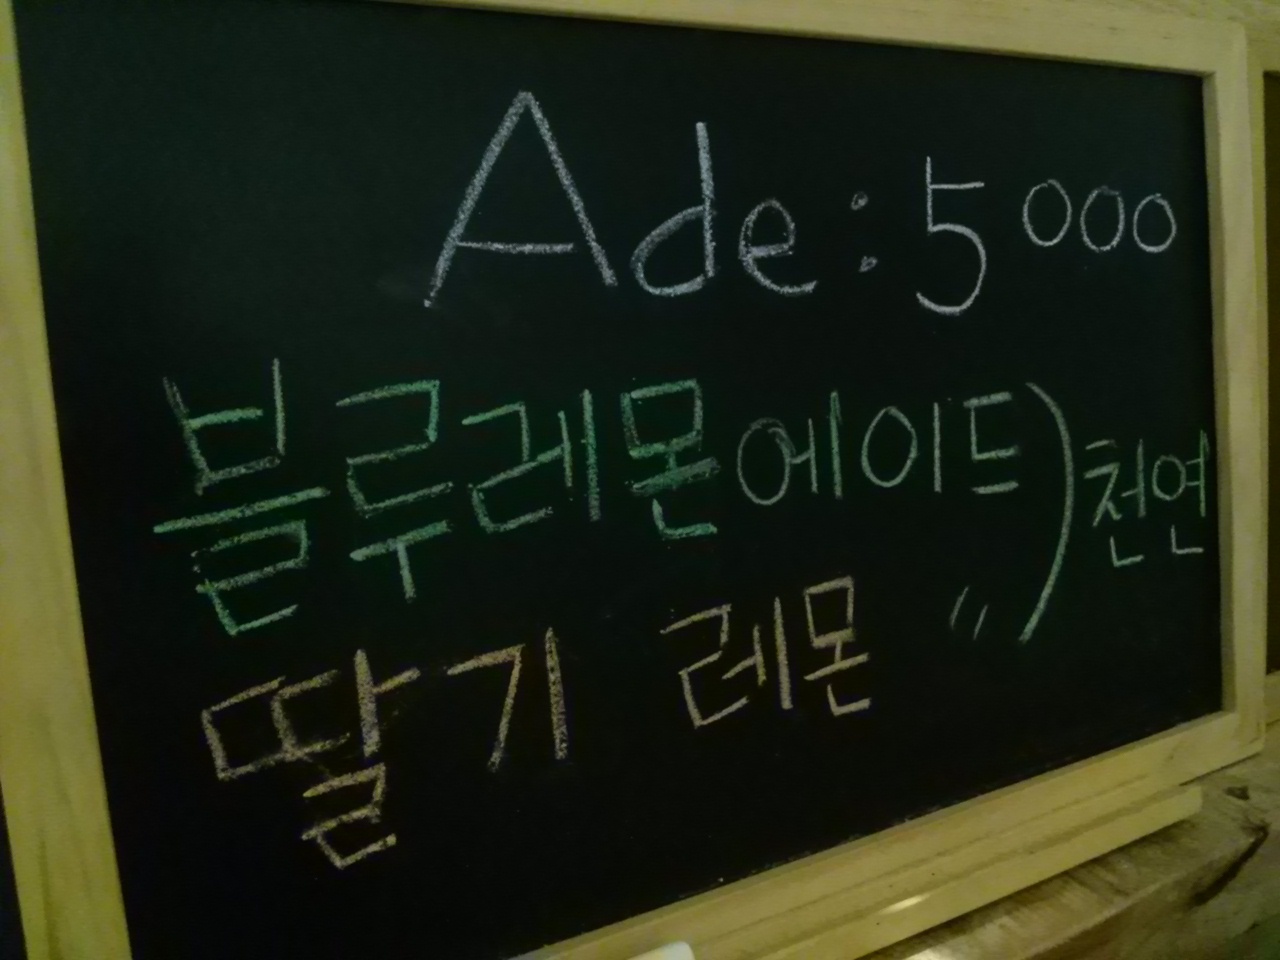 Ade : 5000
블루레몬에이드) 천연
딸기 레몬 〃